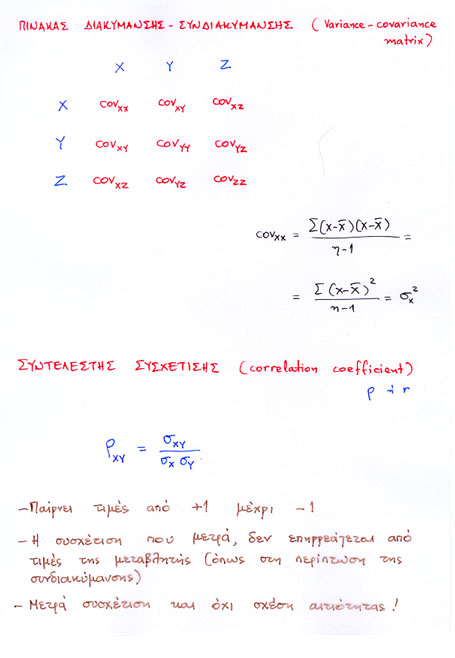 ΠΙΝΑΚΑΣ ΔΙΑΚΥΜΑΝΣΗΣ - ΣΥΝΔΙΑΚΥΜΑΝΣΗΣ (Variance - covariance
matrix)
X Y Z
X cov_xx cov_xy cov_xz
Y cov_xy cov_yy cov_yz
Z cov_xz cov_yz cov_zz
cov_xx = Σ(x-x̄)(x-x̄) / η-1 =
= Σ(x-x̄)² / η-1 = σ_x²
ΣΥΝΤΕΛΕΣΤΗΣ ΣΥΣΧΕΤΙΣΗΣ (correlation coefficient)
ρ ή r
ρ_XY = σ_XY / σ_X σ_Y
- Παίρνει τιμές από +1 μέχρι -1
- Η συσχέτιση που μετρά, δεν επηρρεάζεται από
τιμές της μεταβλητής (όπως στη περίπτωση της
συνδιακύμανσης)
- Μετρά συσχέτιση και όχι σχέση αιτιότητας!